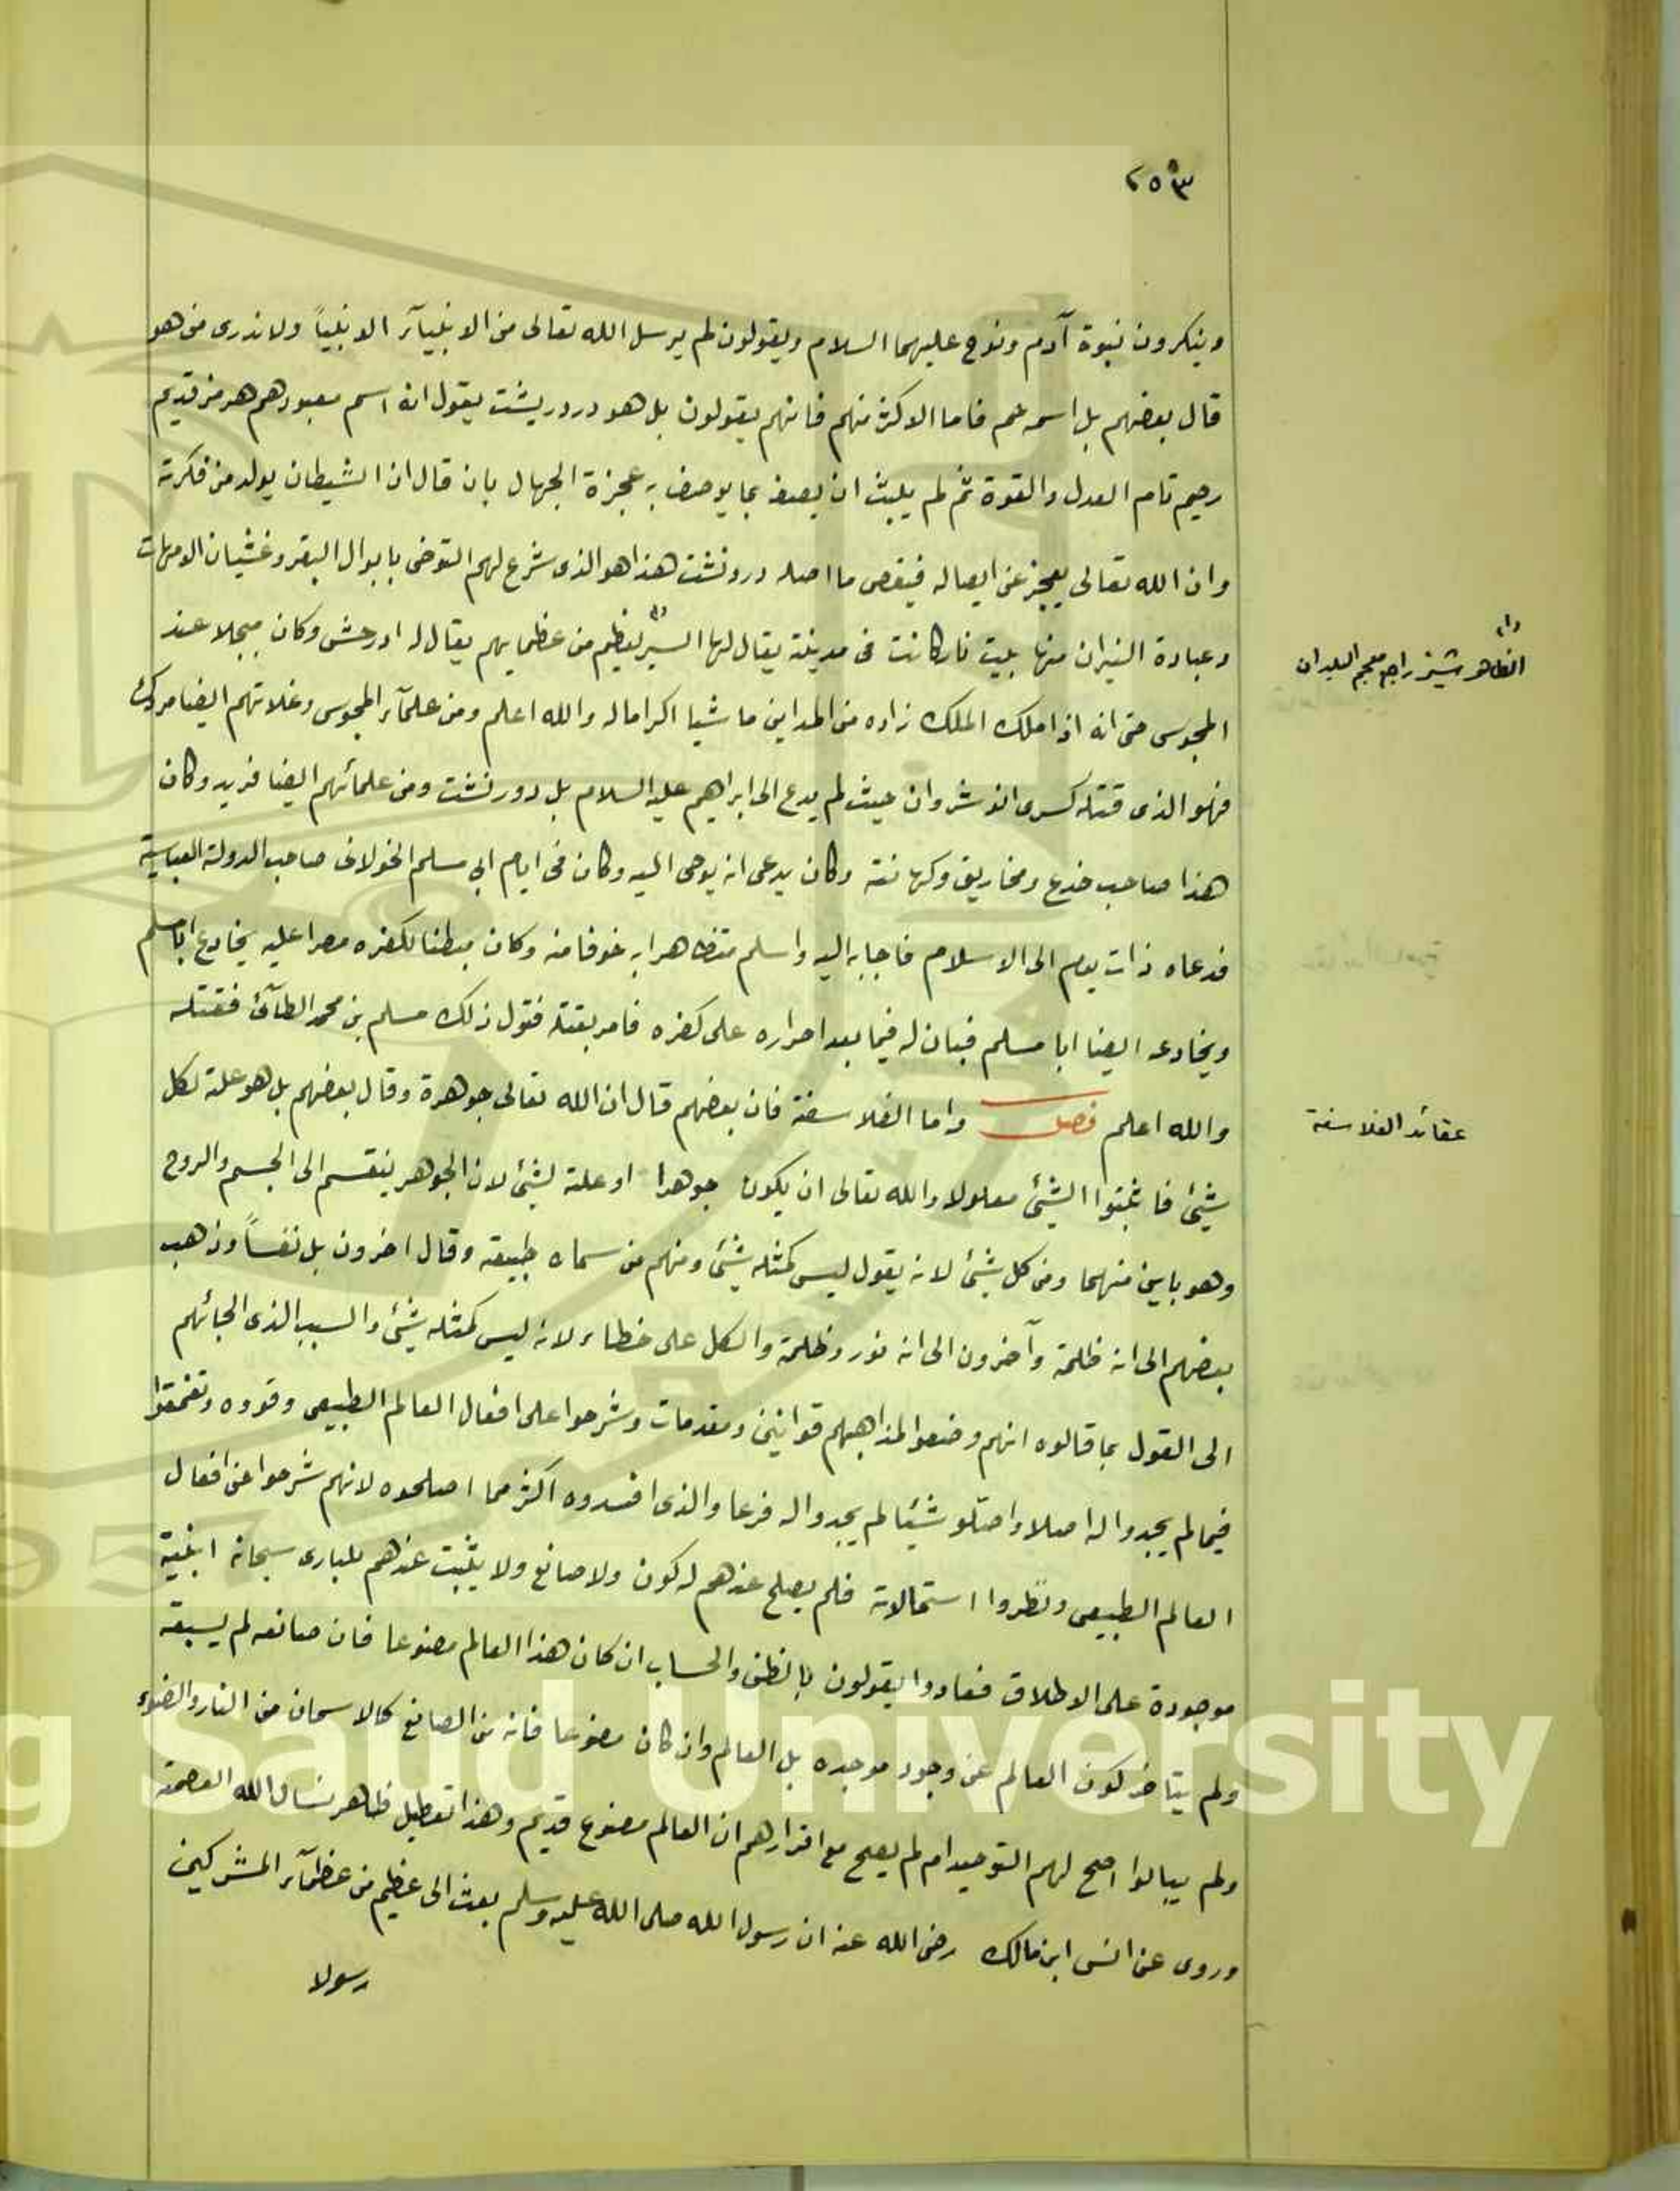 ٢٥٣
وينكرون نبوة آدم ونوح عليهما السلام ويقولون لم يرسل الله تعالى من الانبيآء الا نبياً ولا ندرى من هو
قال بعضهم بل اسمه عم فاما الاكثر منهم فانهم يقولون بل هو دردريشت يقول ان اسم معبودهم هرمز قديم
رحيم تام العدل والقوة ثم لم يلبث ان يصف بما يوصف به عجزة الجهال بان قال ان الشيطان يولد من فكرته
وان الله تعالى يعجز عن ايصاله فينقص ما اصله درونشت هذا هو الذى شرع لهم التوضى بابوال البقر وغشيان الامهات
وعبادة النيران منها بليت نار كانت فى مدينة يقال لها السيز لعظيم من عظمايهم يقال له ادرحش وكان مبجلا عند
(١) الظاهر شيز راجع معجم البلدان
المجوسى حتى انه اذا ملك الملك زاده من المداين ماشيا اكراما له والله اعلم ومن علمآء المجوس وغلاتهم ايضا مردك
فهو الذى قتله كسرى انوشروان حيث لم يدع الى ابراهيم عليه السلام بل دورنشت ومن علمائهم ايضا فريد وكان
هذا صاحب خدع ومخاريق وكهانة وكان يدعى انه يوحى اليه وكان فى ايام ابى مسلم الخولانى صاحب الدولة العباسية
فدعاه ذات يوم الى الاسلام فاجابه اليه واسلم متظاهرا به خوفا منه وكان مبطنا لكفره مصرا عليه يخادع ابا مسلم
ويخادعه ايضا ابا مسلم فبان له فيما بعد اصراره على كفره فامر بقتله فتول ذلك مسلم بن محمد الطآئى فقتله
والله اعلم فصل واما الفلاسفة فان بعضهم قال ان الله تعالى جوهرة وقال بعضهم بل هو علة لكل
عقائد الفلاسفة
شيئ فاثبتوا الشيئ معلولا والله تعالى ان يكون جوهرا او علة لشيئ لان الجوهر ينقسم الى الجسم والروح
وهو باين منهما ومن كل شيئ لانه يقول ليس كمثله شيئ ومنهم من سماه طبيعة وقال اخرون بل نفساً وذهب
بعضهم الى انه ظلمة وآخرون الى انه نور وظلمة والكل على خطاء لانه ليس كمثله شيئ والسبب الذى الجائهم
الى القول بما قالوه انهم وضعوا لمذاهبهم قوانين ومقدمات وشرحوا على افعال العالم الطبيعى وقووه وتعمقوا
فيما لم يجدوا له اصلا واصّلو شيئا لم يجدوا له فرعا والذى افسدوه اكثر مما اصلحوه لانهم شرحوا عن افعال
العالم الطبيعى ونظروا استحالاته فلم يصلح عندهم له كون ولا صانع ولا يثبت عندهم للبارى سبحانه انّية
موجودة على الاطلاق فعادوا يقولون بالظن والحساب ان كان هذا العالم مصنوعا فان صانعه لم يسبقه
ولم يتاخر كون العالم عن وجود موجده بل العالم وان كان مصنوعا فانه من الصانع كالاسحان من النار والضوء
ولم يبالوا اصح لهم التوحيد ام لم يصح مع اقرارهم ان العالم مصنوع قديم وهذا تعطيل ظاهر نسال الله العصمة
وروى عن انس ابن مالك رضى الله عنه ان رسول الله صلى الله عليه وسلم بعث الى عظيم من عظمآء المشركين
رسولا
King Saud University